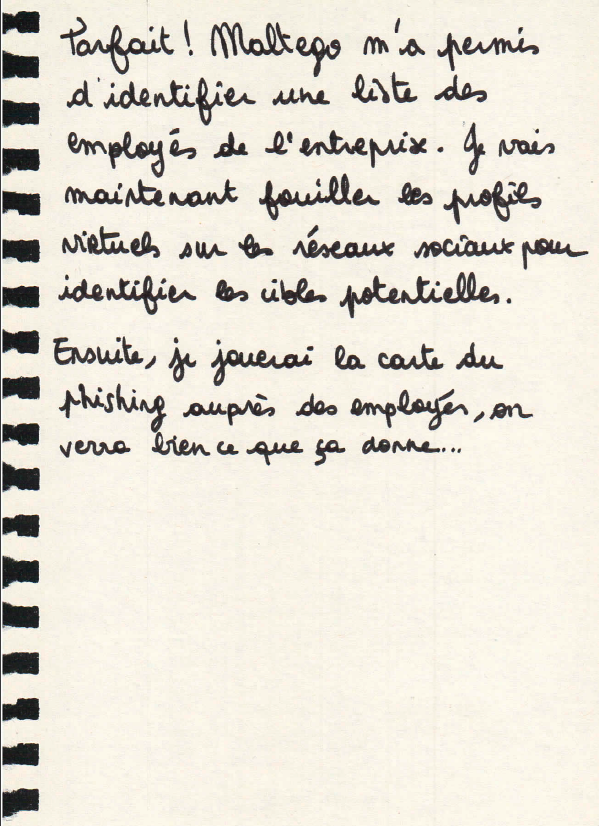 Parfait ! Maltego m'a permis
d'identifier une liste des
employés de l'entreprise. Je vais
maintenant fouiller les profils
virtuels sur les réseaux sociaux pour
identifier les cibles potentielles.
Ensuite, je jouerai la carte du
phishing auprès des employés, on
verra bien ce que ça donne...